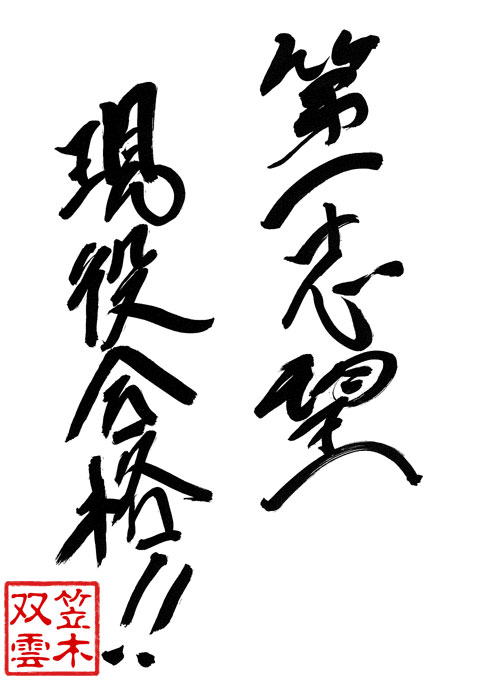 第一志望
現役合格!!
笠木
双雲